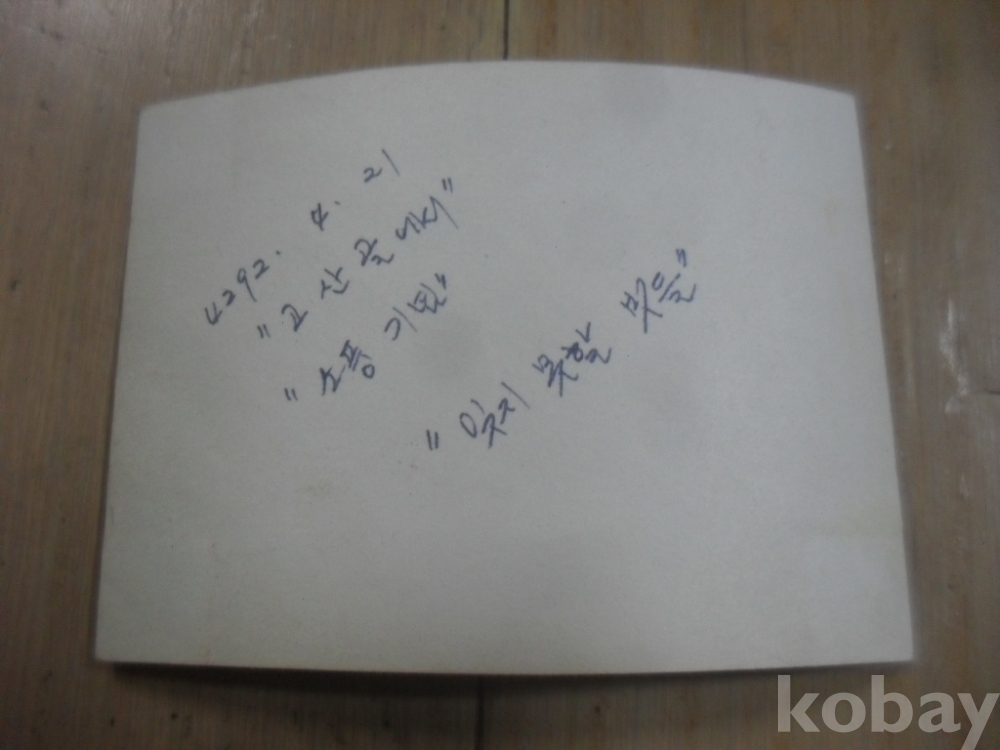 4292. 4. 21
"고산골에서"
"소풍 기념"
"잊지 못할 벗들"
kobay